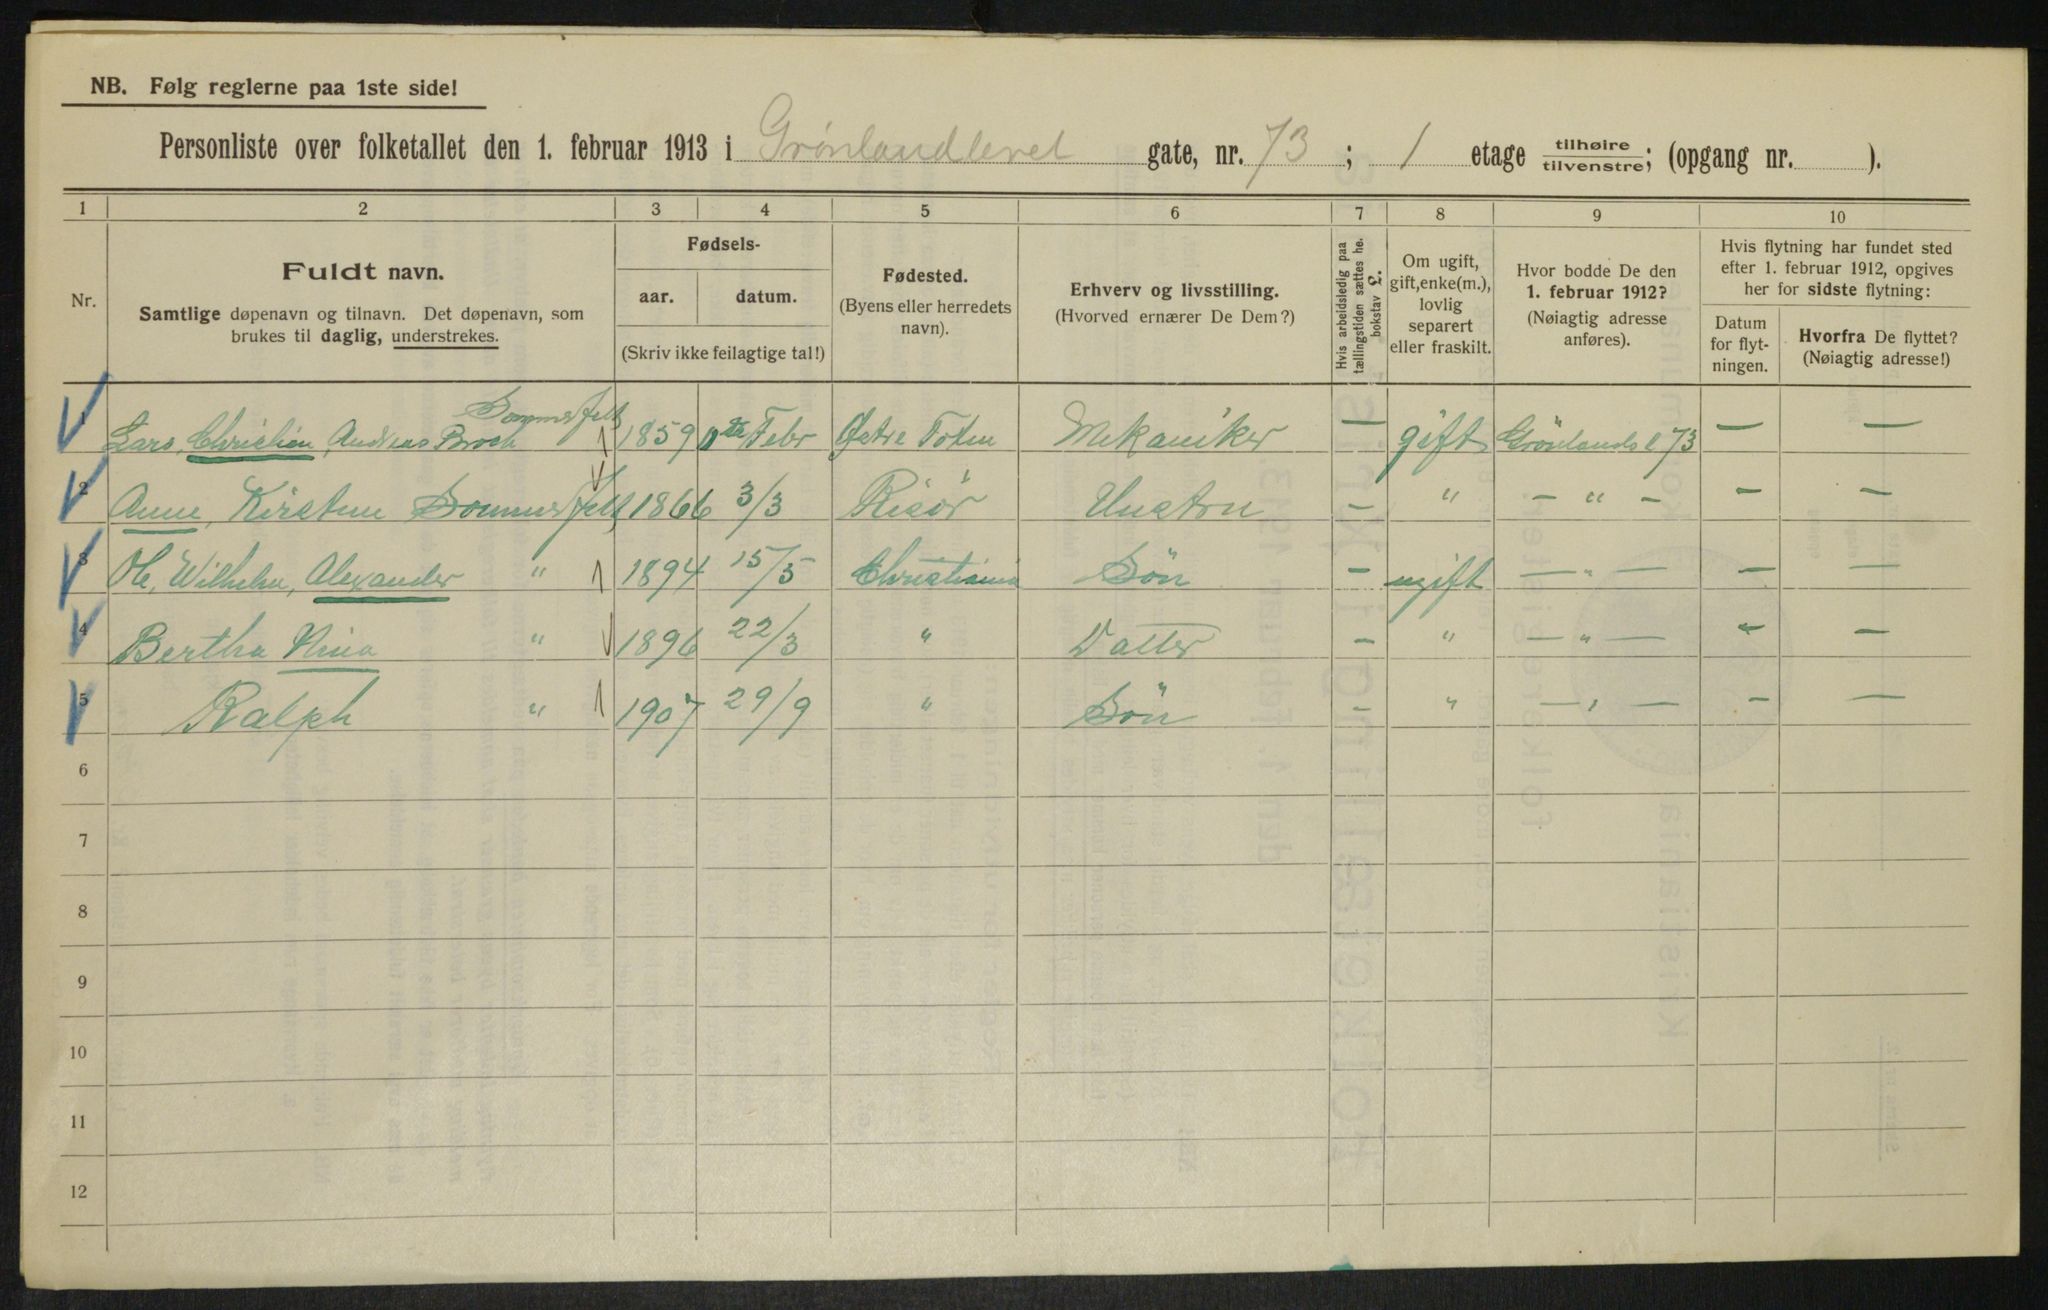 NB. Følg reglerne paa 1ste side!
Personliste over folketallet den 1. februar 1913 i Grønlandsleret gate, nr. 73; 1 etage tilhøire/tilvenstre; (opgang nr. ).
1 2 3 4 5 6 7 8 9 10
Nr.
Fuldt navn.
Samtlige døpenavn og tilnavn. Det døpenavn, som
brukes til daglig, understrekes.
Fødsels-
aar. datum.
(Skriv ikke feilagtige tal!)
Fødested.
(Byens eller herredets
navn).
Erhverv og livsstilling.
(Hvorved ernærer De Dem?)
Hvis arbeidsledig paa
tællingstiden sættes he.
bokstav g.
Om ugift,
gift, enke(m.),
lovlig
separert
eller fraskilt.
Hvor bodde De den
1. februar 1912?
(Nøiagtig adresse
anføres).
Hvis flytning har fundet sted
efter 1. februar 1912, opgives
her for sidste flytning:
Datum
for flyt-
ningen.
Hvorfra De flyttet?
(Nøiagtig adresse!)
Sommerfelt
1 Lars, Christian, Andreas Broch 1859 Febr Østre Toten Mekaniker — gift Grönlandsl 73 — —
2 Anne, Kirstine Sommerfelt 1866 3/3 Risör Hustru — " — " — — —
3 Ole, Wilhelm, Alexander " 1894 15/5 Christiania Sön — ugift — " — — —
4 Bertha Nina " 1896 22/3 " Datter — " — " — — —
5 Ralph " 1907 29/9 " Sön — " — " — — —
6
7
8
9
10
11
12